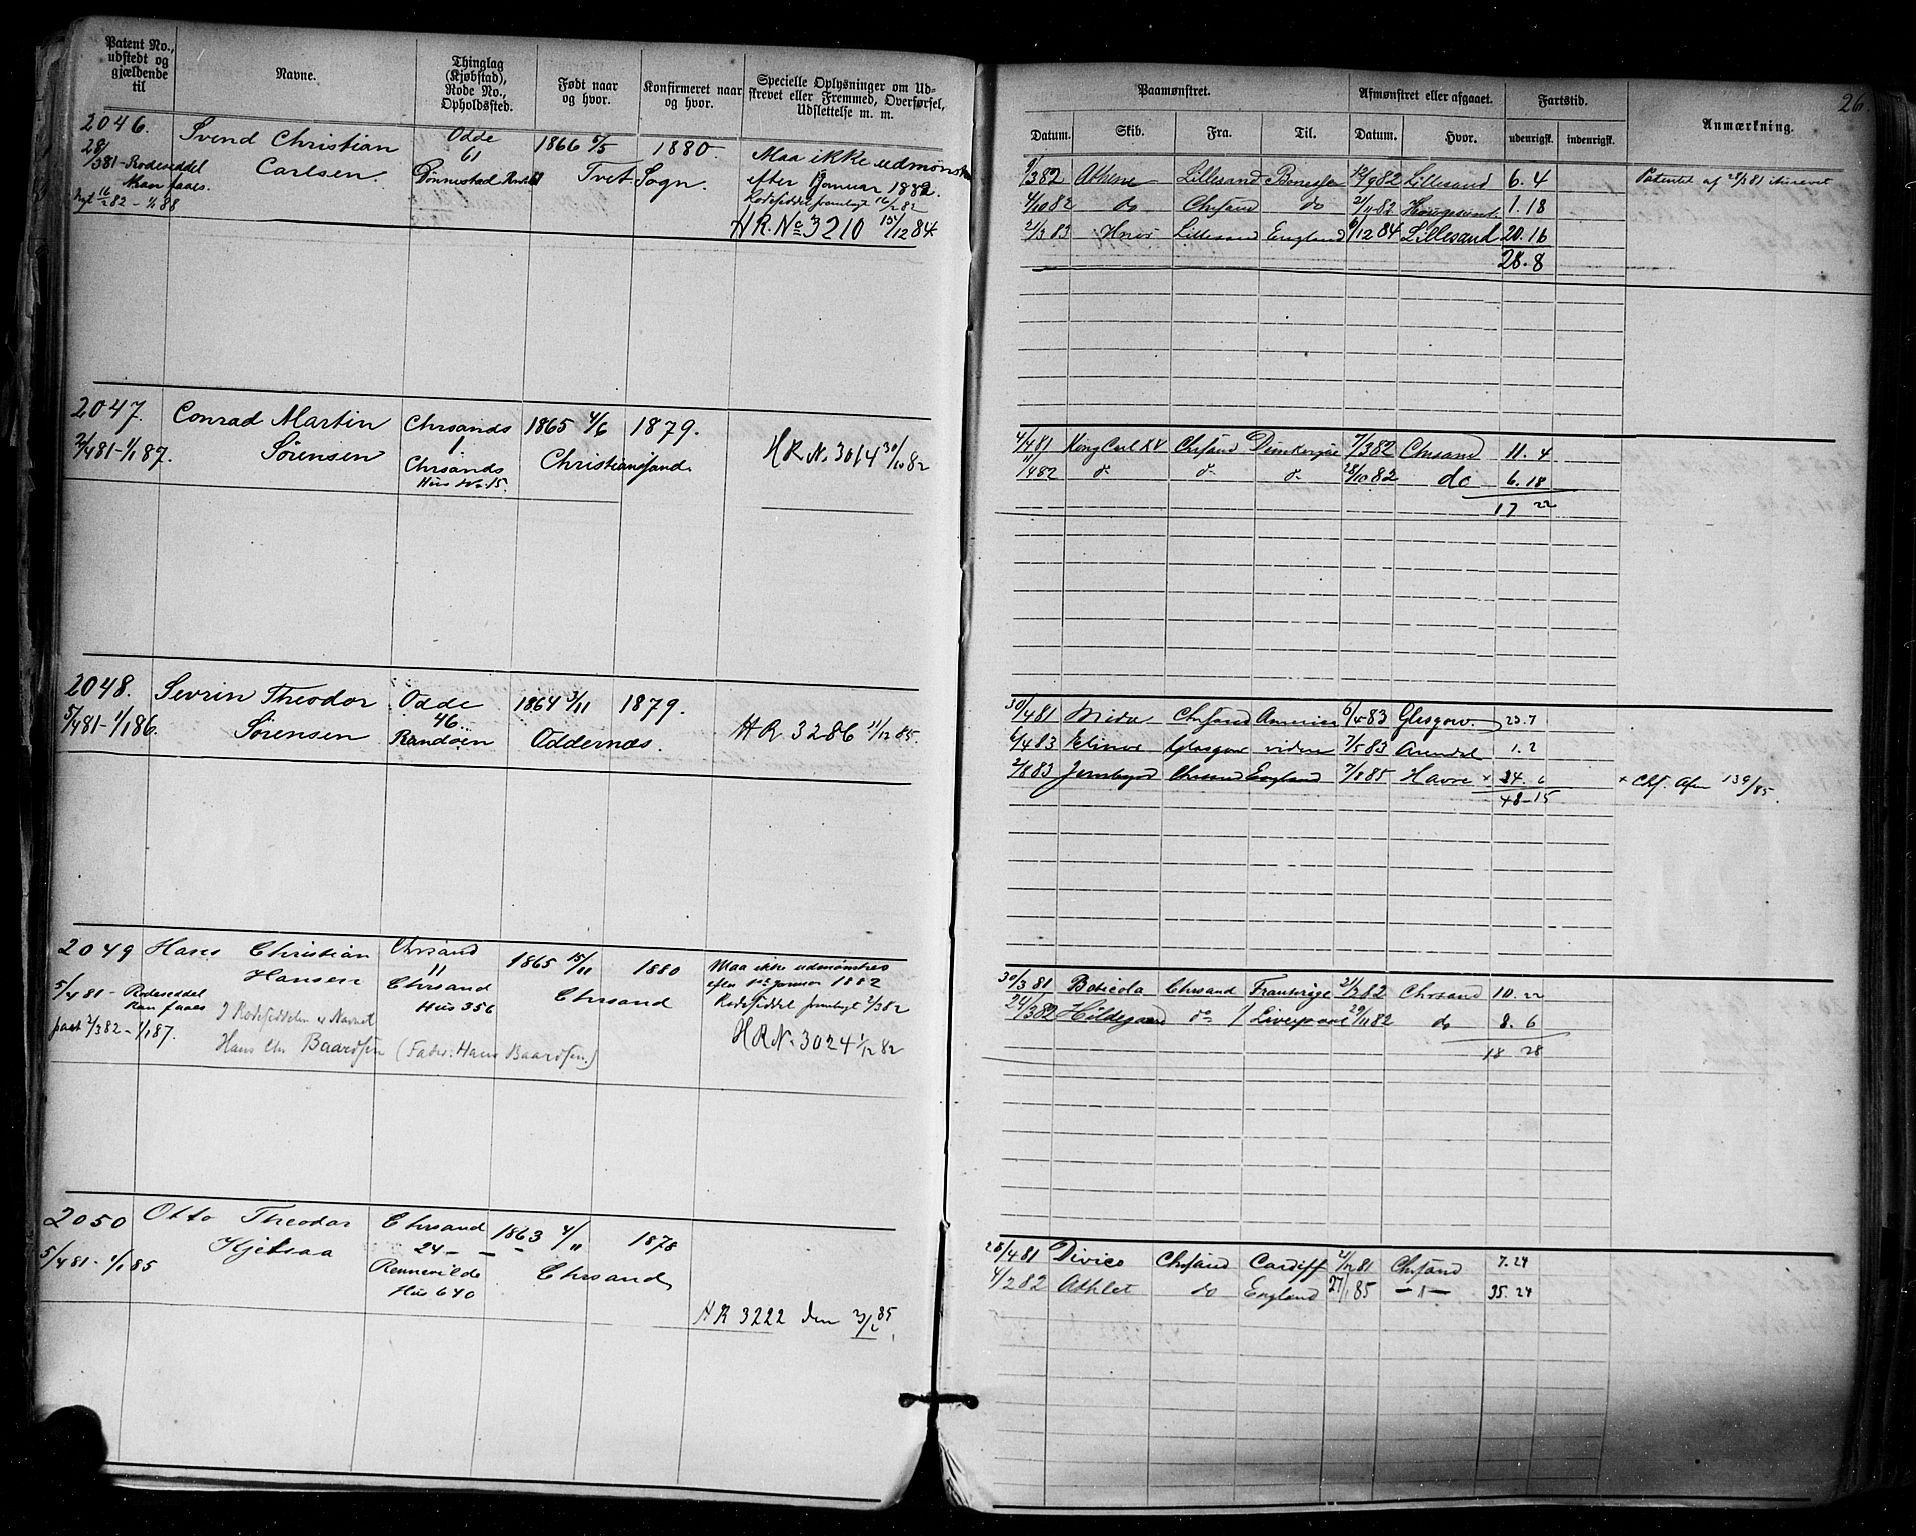 Patent No., udstedt og gjældende til
Navne.
Thinglag (Kjøbstad), Rode No., Opholdssted.
Født naar og hvor.
Konfirmeret naar og hvor.
Specielle Oplysninger om Udskrevet eller Fremmed, Overførsel, Udslettelse m. m.
Paamønstret.
Afmønstret eller afgaaet.
Fartstid.
Anmærkning.
26.
Datum. Skib. Fra. Til. Datum. Hvor. udenrigsk. indenrigsk.
2046. Svend Christian Odde 1866 5/5 1880.
28/381 - Rodeseddel Carlsen. 61 Tvet Sogn. Maa ikke udmønstres
Kan faaes. Dønnestad efter Januar 1882.
Nyt 16/2 82 - 1/1 88 Rodeseddel frembragt 16/2 82
HR. No 3210 15/12 84.
9/3 82 Athene Lillesand 12/9 82 Lillesand 6. 4 Patentet af 28/3 81
4/10 82 do Chrsand do 21/11 82 1. 18
2/3 83 Lillesand England 6/12 84 Lillesand 20. 16
28. 8
2047. Conrad Martin Chrsands 1865 4/6 1879.
2/4 81 - 1/1 87. Sørensen 1 Christianssand HR. N. 3014 30/10 82
Chrsands
Hus No. 15.
4/4 81 Kong Carl XV Chrsand 7/3 82 Chrsand 11. 4
11/4 82 do do do 28/10 82 do 6. 18
17 22
2048. Sevrin Theodor Odde 1864 3/11 1879.
5/4 81 - 1/1 86. Sørensen 46. Oddernæs. HR 3286 11/12 85.
Randøen
30/4 81 Chrsand America 6/4 83 Glasgow. 23. 7
6/4 83 Elinor Glasgow videre 7/5 83 Arendal 1. 2
2/8 83 Chrsand England 7/8 85 Havre x 24. 6 x Chrs. Afm 139/85.
48 - 15
2049 Hans Christian Chrsand 1865 15/11 1880 Maa ikke udmønstres
5/4 81 - Rodeseddel Hansen 11 Chrsand efter 1ste Januar 1882
Kan faaes Chrsand Rodeseddel frembragt 2/3 82
Hus 356
2/3 82 - 1/1 87. I Rodeseddelen er Navnet HR N. 3024 1/12 82
Hans Chr Baardsen (Fader: Hans Baardsen.)
30/3 81 Chrsand Frankrige 21/2 82 Chrsand 10. 22
24/3 82 Hildegaard do Liverpool 29/11 82 do 8. 6
18 28
2050 Otto Theodor Chrsand 1863 4/11 1878
5/4 81 - 1/1 85 Kjetsaa 24 - Chrsand
Rennevilde
Hus 640
HR 3222 den 3/2 85.
28/4 81 Divico Chrsand Cardiff 21/12 81 Chrsand 7. 24
4/2 82 Athlet do England 27/1 85 - " - 35. 24